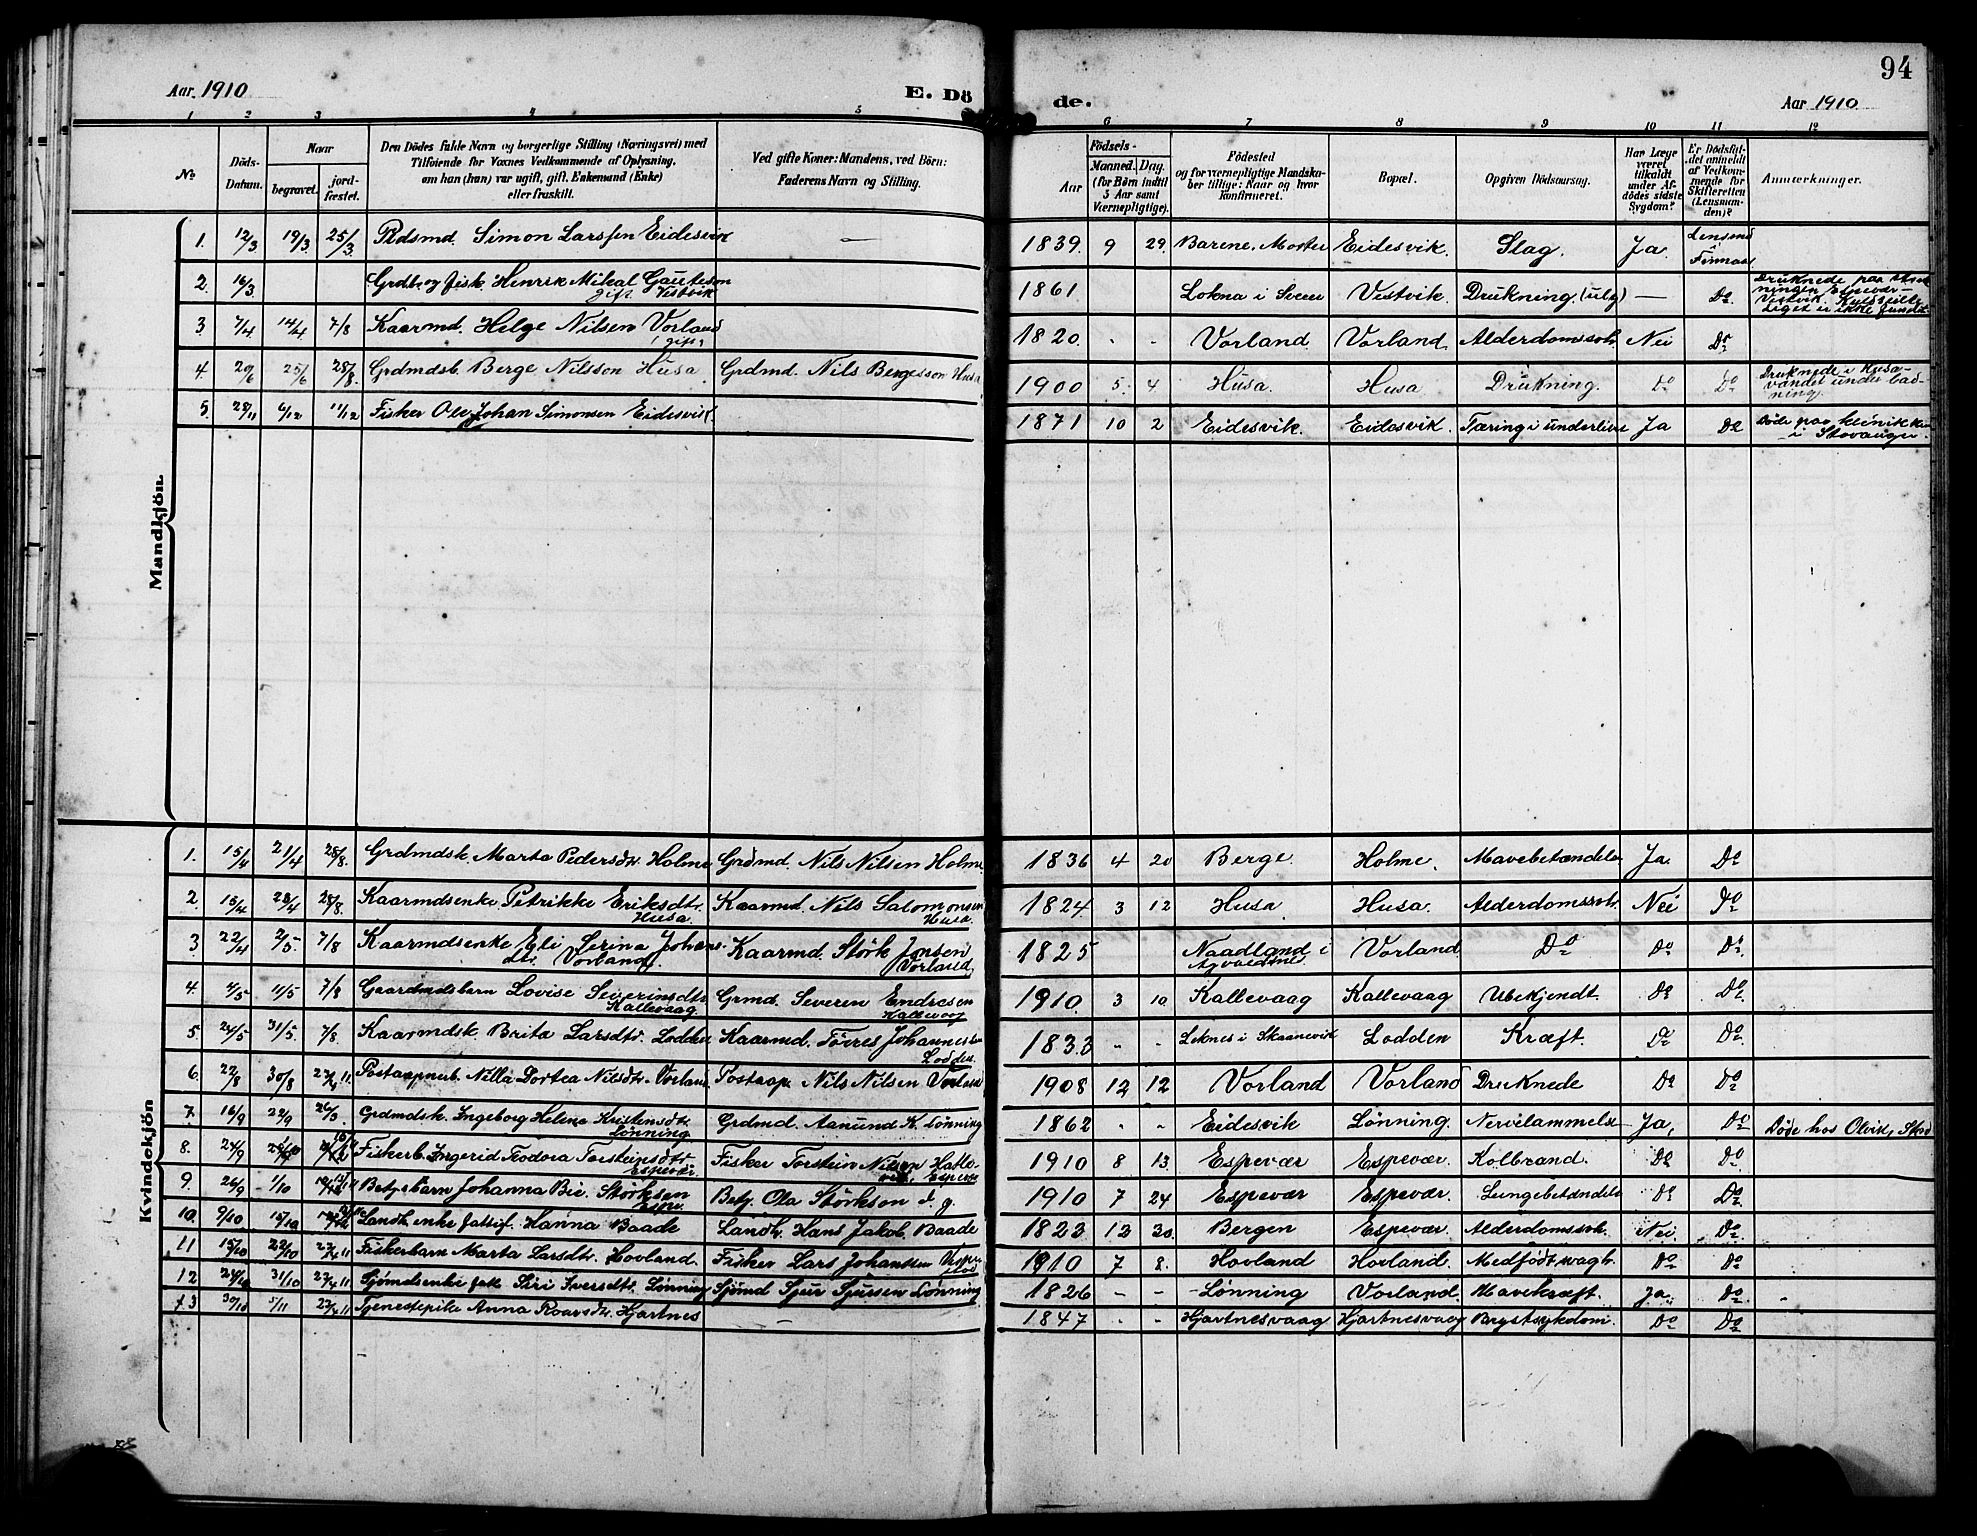 94
Aar 1910 E. Dö de. Aar 1910
1 2 3 4 5 6 7 8 9 10 11 12
No
Döds-Datum.
Naar
begravet.
jord-fæstet.
Den Dödes fulde Navn og borgerlige Stilling (Næringsvei) med
Tilföiende for Voxnes Vedkommende af Oplysning,
om han (hun) var ugift, gift, Enkemand (Enke)
eller fraskilt.
Ved gifte Koner: Mandens, ved Börn:
Faderens Navn og Stilling.
Födsels-
Aar
Maaned. Dag.
(for Børn indtil
5 Aar samt
Værnepligtige).
Födested
og for værnepligtige Mandska-
ber tillige: Naar og hvor
konfirmeret.
Bopæl.
Opgiven Dödsaarsag.
Har Læge
været
tilkaldt
under Af-
dödes sidste
Sygdom?
Er Dödsfal-
det anmeldt
af Vedkom-
mende for
Skifteretten
(Lensman-
den)?
Anmærkninger.
Mandkjön.
1. 12/3 19/3 25/3 Simon Larssen Eidesvik — 1839 9 29 Barene, Moster Eidesvik Slag. Ja. Lensmd i Finnaas
2. 16/3 Grdbr og fisk. Henrik Mikal Gauteson
gift Vestvik 1861 Lokna i Sveen Vestvik. Drukning (ulg) — Do Druknede paa stræk
ningen Espevær-
Vestvik.
Liget er ikke fundet
3 7/4 14/4 7/8 Kaarmd. Helge Nilsen Vorland
(gift) 1820 - - Vorland Vorland Alderdomssvh. Nei Do
4. 20/6 25/6 28/8. Grdmdsb. Berge Nilsson Husa Grdmd. Nils Bergesson Husa 1900 5. 4 Husa. Husa Drukning. Do Do Druknede i Husa-
vandet under bad-
ning.
5. 28/11 6/12 11/12 Fisker Ole Johan Simonsen Eidesvik. 1871 10 2 Eidesvik. Eidesvik. Tæring i underlivet Ja Do Døde paa klinikken
i Stavanger.
Kvindekjön
1. 15/4 21/4 28/8. Grdmdsk. Marta Pedersdtr. Holme Grdmd. Nils Nilsen Holme 1836 4 20 Berge. Holme. Mavebetændelse Ja. Do
2. 15/4 23/4 28/8. Kaarmdsenke Petrikke Eriksdtr.
Husa Kaarmd. Nils Salomonsen
Husa 1824 3 12 Husa Husa. Alderdomssvh. Nei Do
3 22/4 2/5 7/8 Kaarmdsenke Eli Serina Johans-
dtr. Vorland. Kaarmd. Størk Jonsen
Vorland 1825 Naadland i
Vorland Do Do Do
4. 4/5 11/5 7/8 Gaardmdsbarn Lovise Severinsdtr
Kallevaag Grmd. Severen Endresen
Kallevaag 1910 3 10 Kallevaag Kallevaag Ubekjendt. Do Do
5. 24/5 31/5. 7/8. Kaarmdsk Brita Larsdtr. Lodden Kaarmd. Tørres Johannesen
Lodden. 1833 - - Leknes i Skaanevik Lodden Kræft. Do Do
6. 22/8 30/8 Postaapnerb. Nilla Dortea Nilsdtr. Vorland Postaap. Nils Nilsen Vorland 1908 12 12 Vorland Vorland Druknede Do Do
7. 16/9 22/9 Grdmdsk. Ingeborg Helene Kristensdtr
Lønning Grdmd. Aanund K. Lønning 1862 - - Eidesvik Lønning. Nervelammelse Ja, Do Døde hos Olvik, Stord
8. 24/9 Fiskerb. Ingerid Teodora Torsteinsdtr
Espevær Fisker Torstein Nilsen Hatle-
vik, Espevær 1910 8 13. Espevær Espevær. Kolbrand. Do Do
9 26/9 1/10 Johanna Bie. Størksen
Espe. Ola Størksen d. g. 1910 7 24 Espevær Espevær. Lungebetændelse Do Do
10. 9/10 15/10 Landh. enke fattigf. Hanna Baade Landh. Hans Jakob Baade 1823 12 30 Bergen Espevær. Alderdomssvh. Nei Do
11 15/10 22/10 27/4 11 Fiskerbarn Marta Larsdtr. Hovland. Fisker Lars Johansen 1910 7 8. Hovland Hovland. Medfødt svagh. Do Do
12 31/10 27/4 11 Sjømdsenke Siri Iversdtr. Lønning Sjømd Sjur Sjursen Lønning 1826 - - Lønning Vorland. Mavekræft. Ja. Do
13 30/10 5/11 27/4 11 Tjenestepike Anna Roarsdtr. Hjartnes — 1847 - - Hjartnesvaag Hjartnesvaag Brystsykdom. Do Do